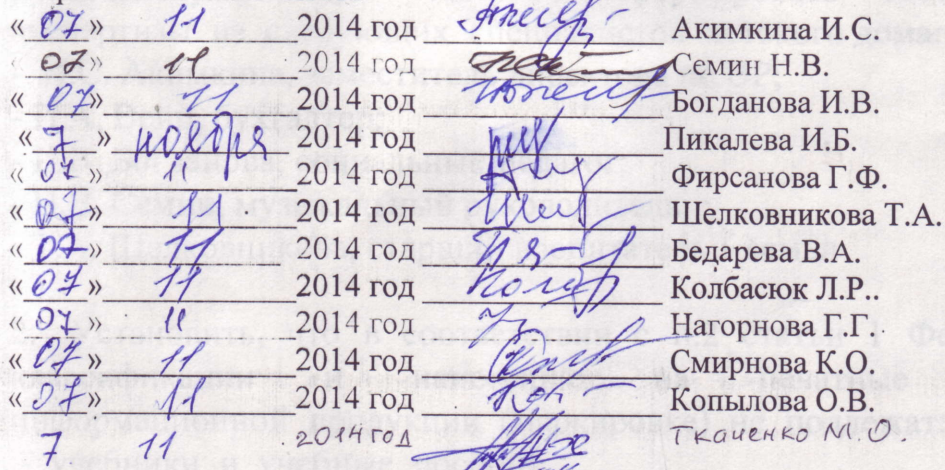 «07» 11 2014 год Акимкина И.С.
«07» 11 2014 год Семин Н.В.
«07» 11 2014 год Богданова И.В.
«7» ноября 2014 год Пикалева И.Б.
«07» 11 2014 год Фирсанова Г.Ф.
«07» 11 2014 год Шелковникова Т.А.
«07» 11 2014 год Бедарева В.А.
«07» 11 2014 год Колбасюк Л.Р..
«07» 11 2014 год Нагорнова Г.Г.
«07» 11 2014 год Смирнова К.О.
«07» 11 2014 год Копылова О.В.
7 11 2014 год Ткаченко